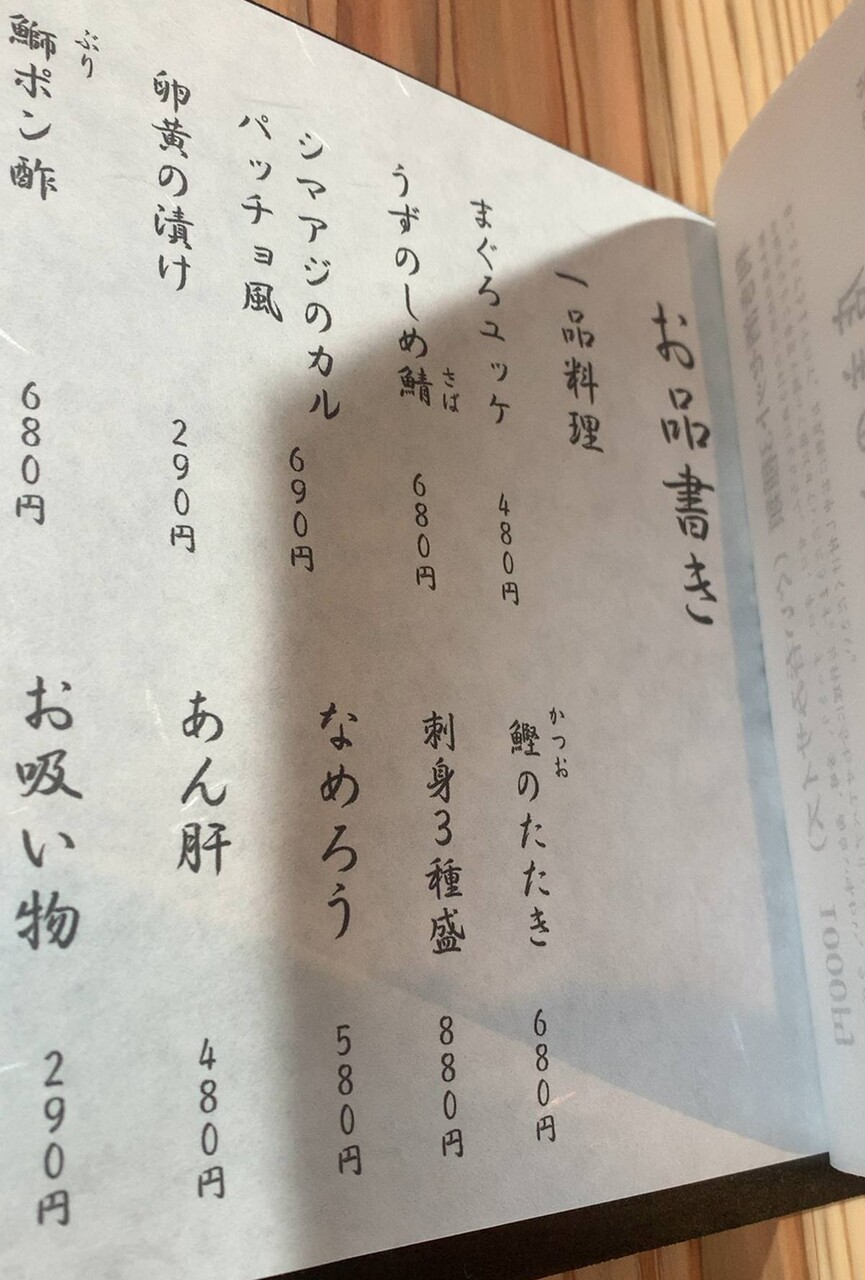 お品書き
一品料理
まぐろユッケ
480円
うずのしめ鯖
さば
680円
シマアジのカル
パッチョ風
690円
卵黄の漬け
290円
鰤ポン酢
ぶり
680円
鰹のたたき
かつお
680円
刺身3種盛
880円
なめろう
580円
あん肝
480円
お吸い物
290円